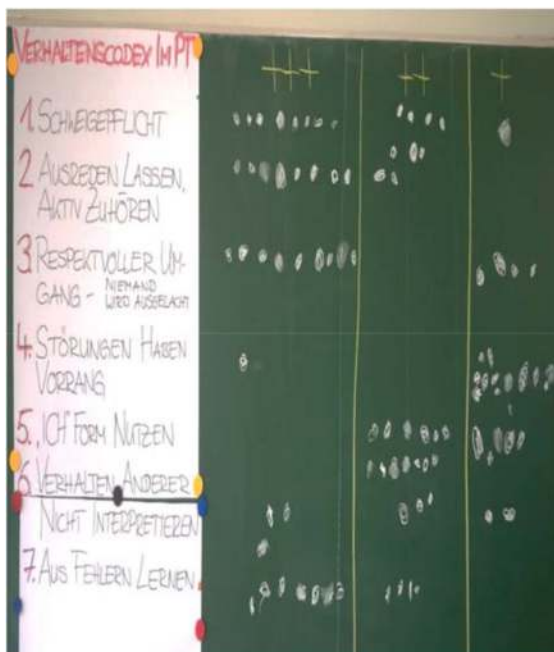 VERHALTENSCODEX IM PT
+++ ++ +
1. SCHWEIGEPFLICHT
2. AUSREDEN LASSEN,
AKTIV ZUHÖREN
3. RESPEKTVOLLER UM-
GANG - NIEMAND
WIRD AUSGELACHT
4. STÖRUNGEN HABEN
VORRANG
5. ICH FORM NUTZEN
6. VERHALTEN ANDERER
NICHT INTERPRETIEREN
7. AUS FEHLERN LERNEN